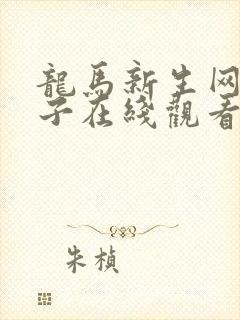 龍馬新生网
子在綫觀看
朱楨